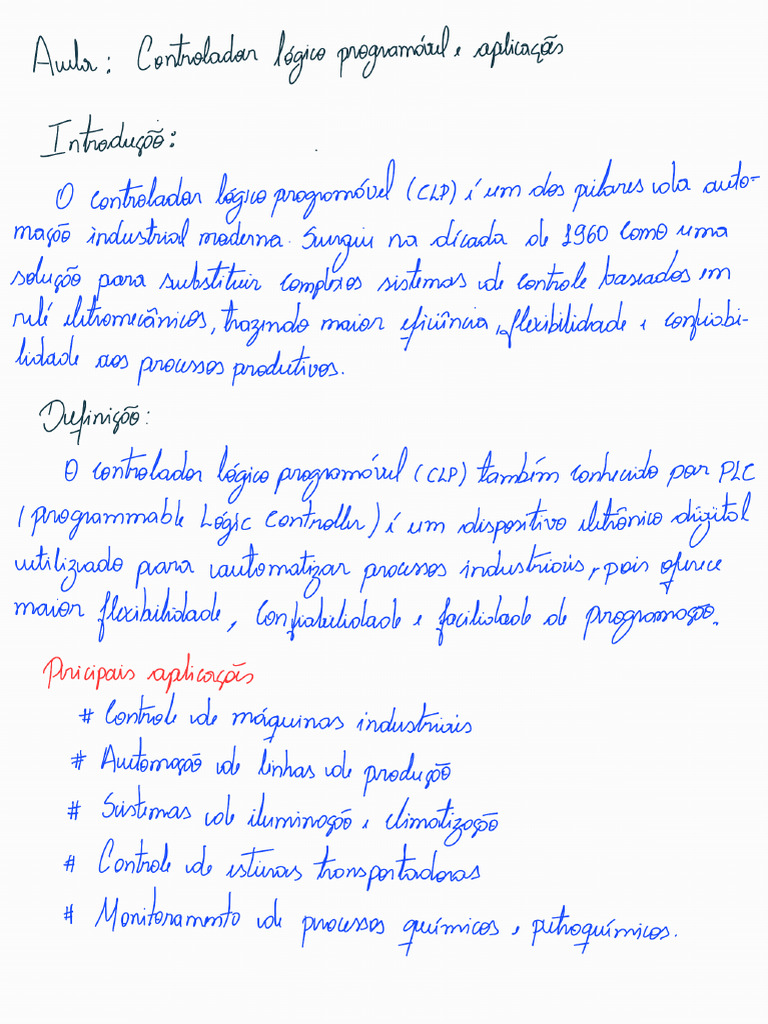 Aula: Controlador lógico programável e aplicações
Introdução:
O controlador lógico programável (CLP) é um dos pilares da auto-
mação industrial moderna. Surgiu na década de 1960 como uma
solução para substituir complexos sistemas de controle baseados em
relé eletromecânicos, trazendo maior eficiência, flexibilidade e confiabi-
lidade aos processos produtivos.
Definição:
O controlador lógico programável (CLP) também conhecido por PLC
(programmable Lógic Controller) é um dispositivo eletrônico digital
utilizado para automatizar processos industriais, pois oferece
maior flexibilidade, confiabilidade e facilidade de programação.
Pricipais aplicações
# Controle de máquinas industriais
# Automação de linhas de produção
# Sistemas de iluminação e climatização
# Controle de esteiras transportadoras
# Monitoramento de processos químicos e petroquímicos.